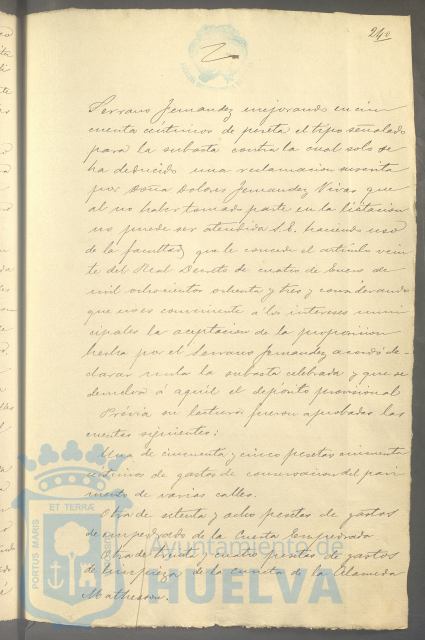 240
Serrano Fernandez mejorando en cin
cuenta céntimos de peseta el tipo señalado
para la subasta contra la cual solo se
ha deducido una reclamacion suscrita
por Doña Dolores Fernandez Vivas que
al no haber tomado parte en la licitacion
no puede ser atendida S.E. haciendo uso
de la facultad que le concede el artículo vein
te del Real Decreto de cuatro de Enero de
mil ochocientos ochenta y tres y considerando
que no es conveniente á los intereses muni
cipales la aceptacion de la proposicion
hecha por el Serrano Fernandez acordó de-
clarar nula la subasta celebrada y que se
devuelva á aquel el depósito provisional
Prévia su lectura fueron aprobadas las
cuentas siguientes:
Una de cincuenta y cinco pesetas cincuenta
céntimos de gastos de conservacion del pavi
mento de varias calles.
Otra de setenta y ocho pesetas de gastos
de empedrado de la Cuesta Empedrada
Otra de treinta y cuatro pesetas de gastos
de limpieza de la cuneta de la Alameda
Matheson.
PORTUS MARIS
ET TERRÆ
Ayuntamiento de
HUELVA